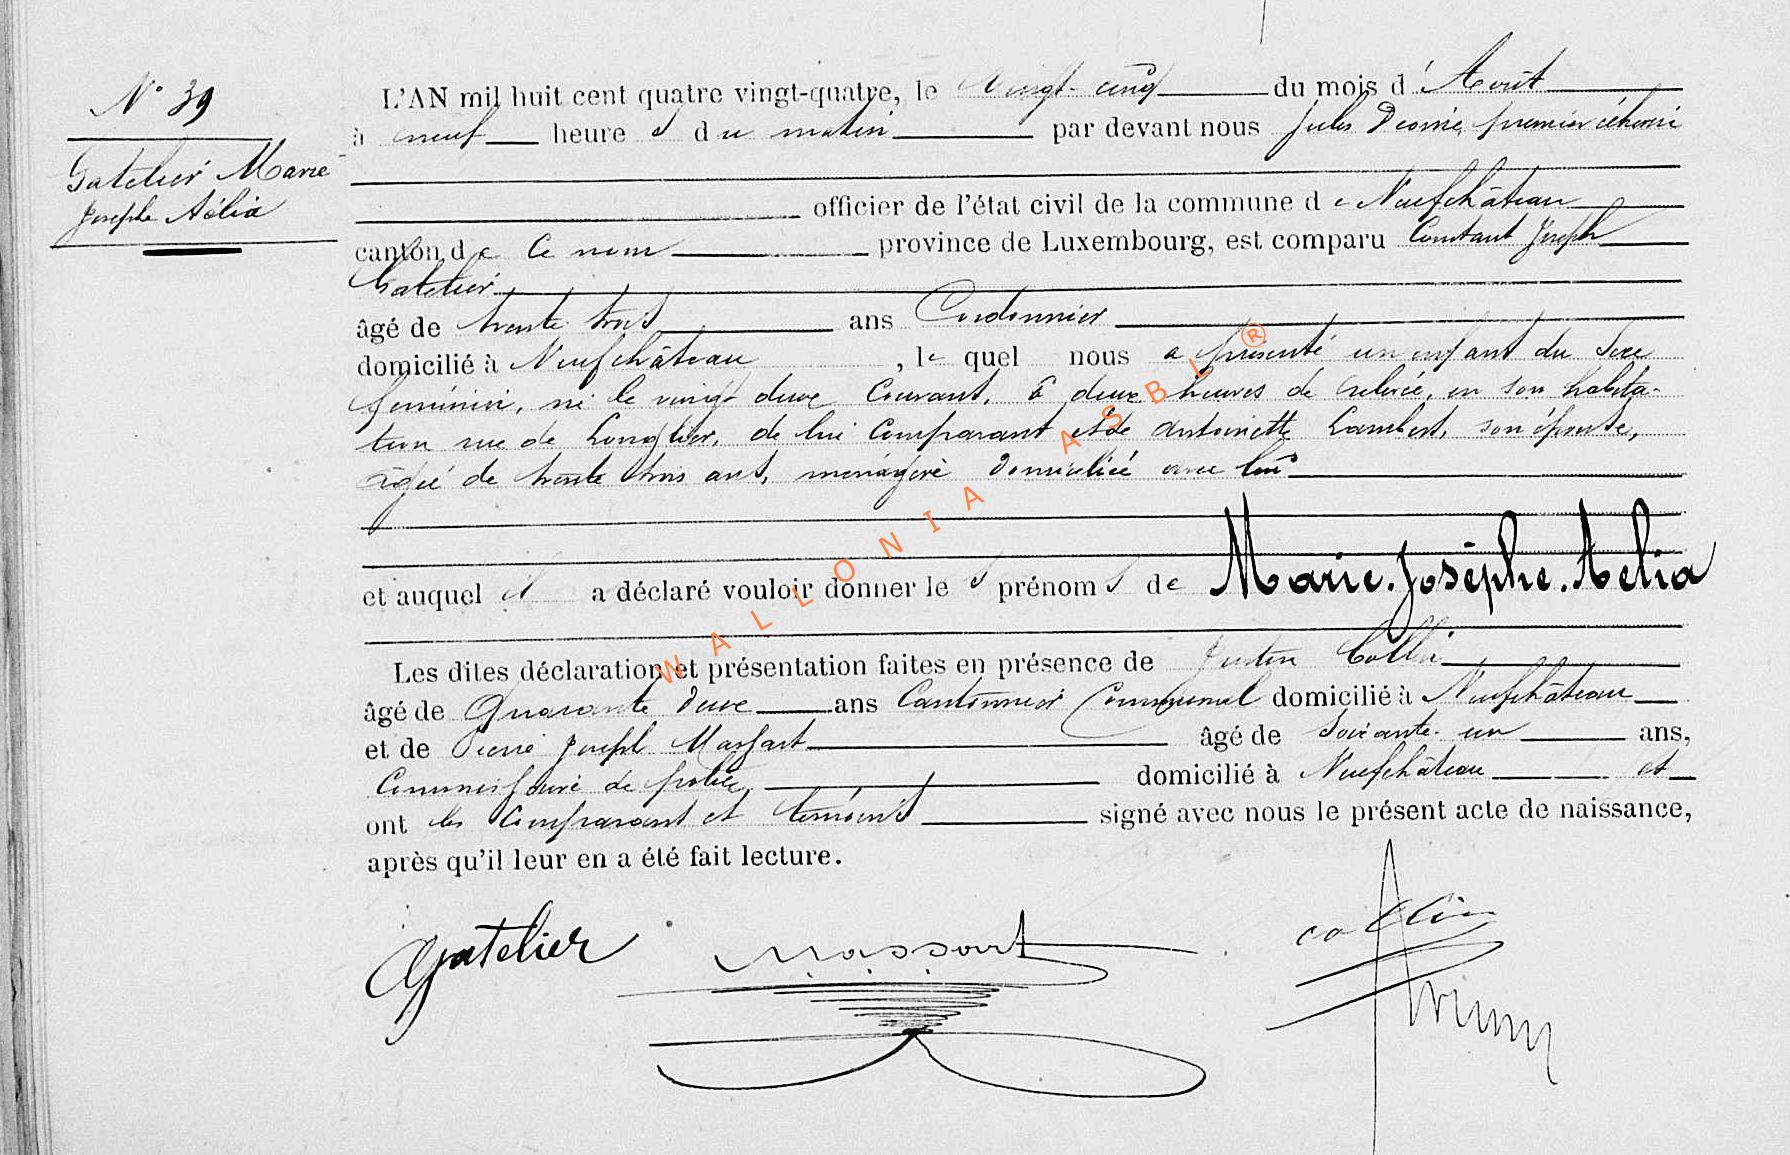 N° 39
Gatelier Marie
Joseph Aélia
L'AN mil huit cent quatre vingt-quatre, le vingt-cinq du mois d' Août
à neuf heure s du matin par devant nous Jules premier échevin
officier de l'état civil de la commune de Neufchâteau
canton de Ce nom province de Luxembourg, est comparu Constant Joseph
Gatelier
âgé de trente trois ans Cordonnier
domicilié à Neufchâteau, le quel nous a présenté un enfant du Sexe
féminin, né le vingt deux Courant, à deux heures de relevée, en son habita-
tion rue de Longlier, de lui Comparant et de Antoinette Lambert, son épouse,
âgée de trente trois ans, ménagère domiciliée avec lui
et auquel il a déclaré vouloir donner le s prénom s de Marie. Josèphe. Aelia
Les dites déclaration et présentation faites en présence de Justin Collin
âgé de Quarante deux ans Cantonnier Communal domicilié à Neufchâteau
et de Pierre Joseph Massart âgé de Soixante-un ans,
Commissaire de police, domicilié à Neufchâteau et
ont les Comparant et témoins signé avec nous le présent acte de naissance,
après qu'il leur en a été fait lecture.
Gatelier
Massart
Collin
WALLONIA ASBL ®